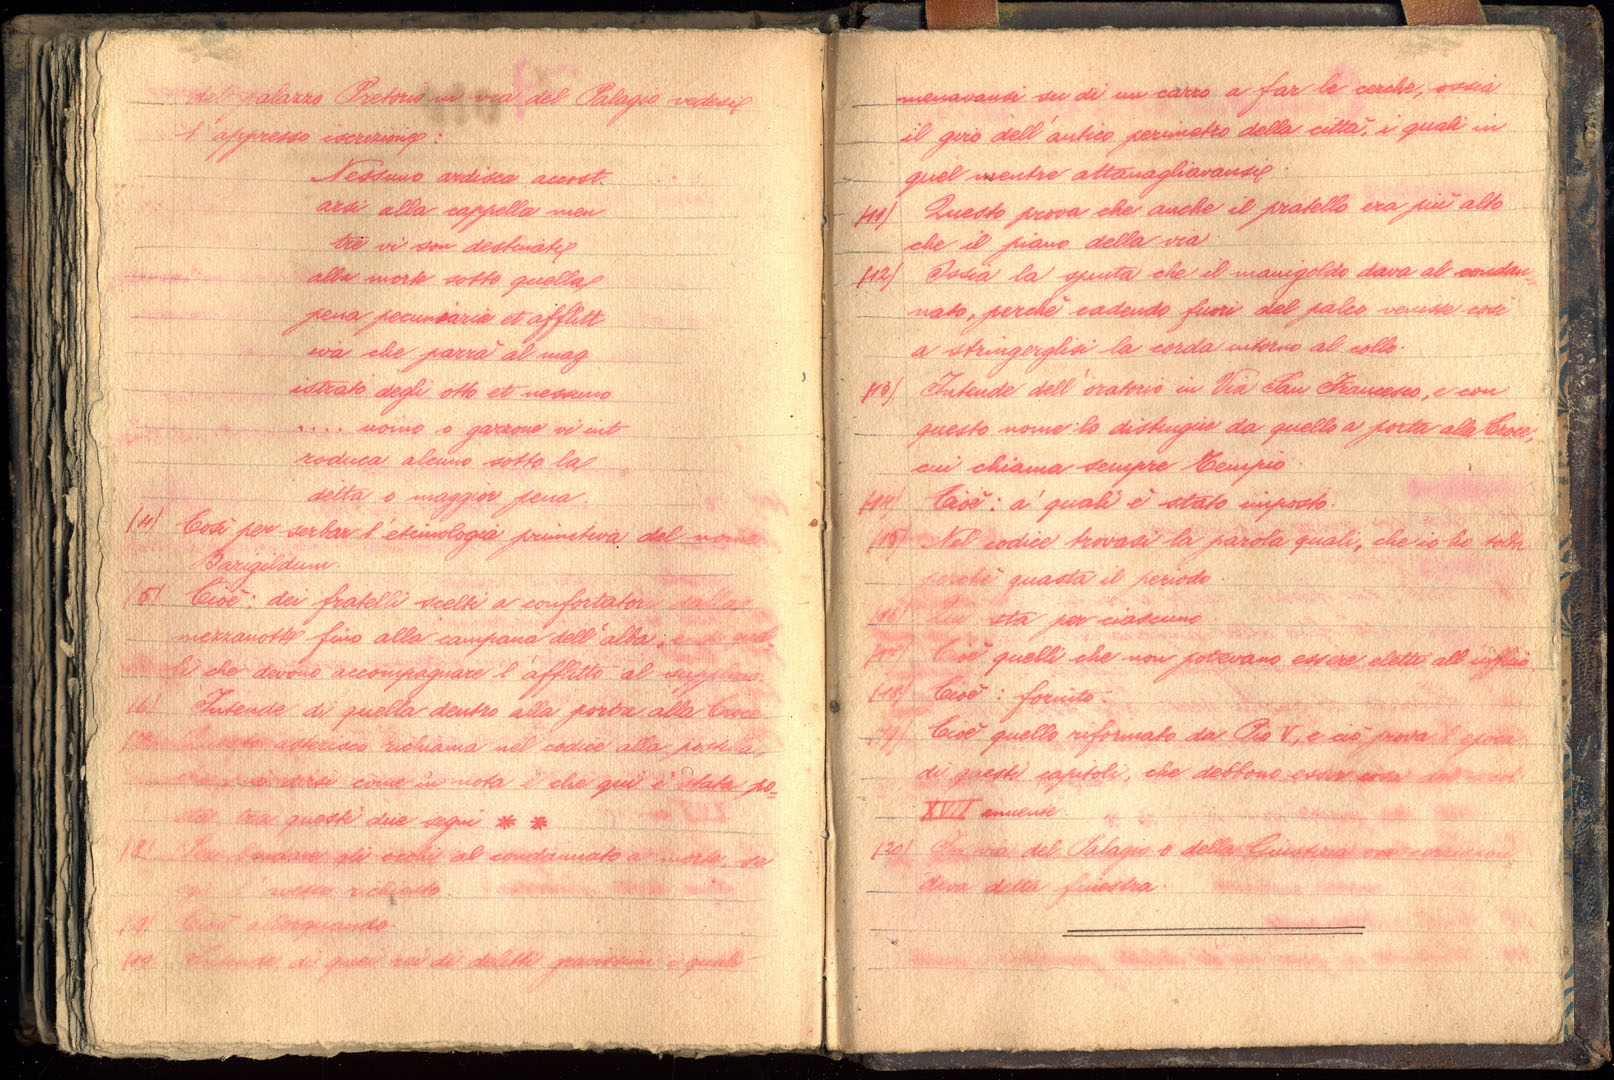 del palazzo Pretorio in via del Palagio vedesi
l'appresso iscrizione:
Nessuno ardisca accost
arsi alla cappella men
tre vi son destinati
alla morte sotto quella
pena pecuniaria et afflitt
iva che parrà al mag
istrato degli otto et nessuno
.... uomo o garzone vi int
roduca alcuno sotto la
detta o maggior pena.
(4) Così per serbar l'etimologia primitiva del nome
Barigildum.
(5) Cioè: dei fratelli scelti a confortatori dalla
mezzanotte fino alla campana dell'alba, e di qual-
li che devono accompagnare l'afflitto al supplizio.
(6) Intende di quella dentro alla porta alla Croce
asterisco richiama nel codice alla postilla,
come in nota e che qui è stata po-
sta tra questi due segni * *
(8) Per bendare gli occhi al condannato a morte, se
richiesto.
(9) Cioè allorquando.
(10) Intende di quei rei di delitti gravissimi i quali
menavansi su di un carro a far le cerche, ossia
il giro dell'antico perimetro della città, i quali in
quel mentre attanagliavansi.
(11) Questo prova che anche il pratello era più alto
che il piano della via.
(12) Ossia la spinta che il manigoldo dava al condan=
nato, perchè cadendo fuori del palco venisse così
a stringerglisi la corda intorno al collo.
(13) Intende dell'oratorio in Via San Francesco, e con
questo nome lo distingue da quello a porta alla Croce,
cui chiama sempre Tempio.
(14) Cioè: a' quali è stato imposto.
(15) Nel codice trovasi la parola quali, che io ho tolta
perchè guasta il periodo.
(16) Qui sta per ciascuno
(17) Cioè quelli che non potevano essere eletti all'uffizio
(18) Cioè: fornito.
(19) Cioè quello riformato da Pio V, e ciò prova l'epoca
di questi capitoli, che debbono esser cosa del secol
XVII
(20) In via del Palagio o della Giustizia ove corrispon
deva detta finestra.